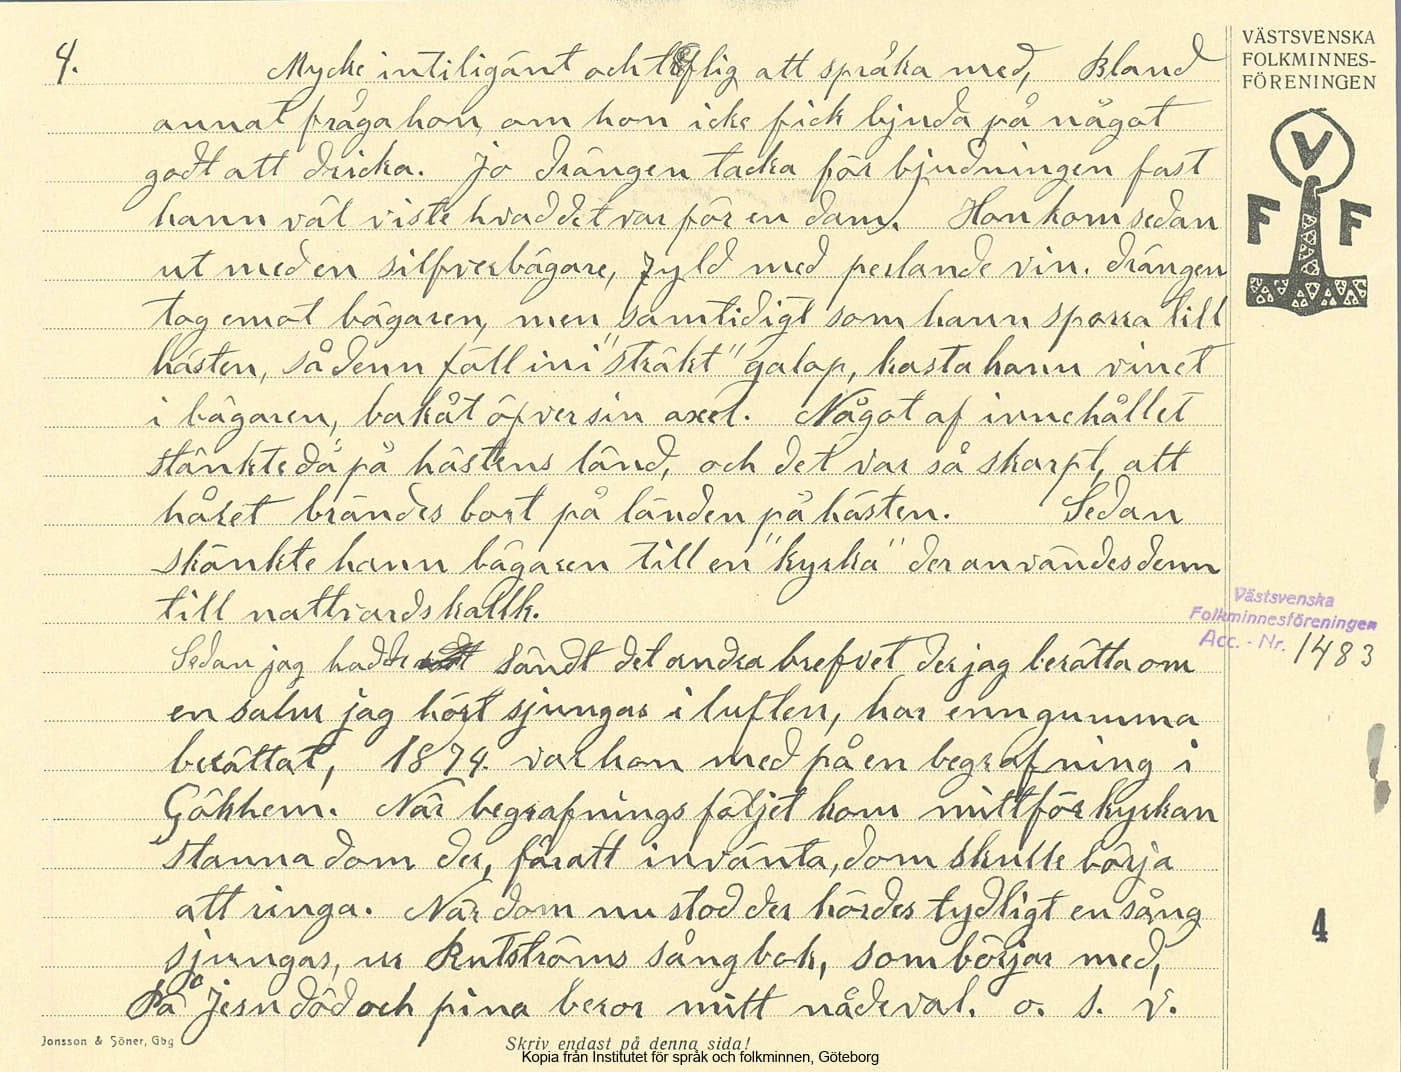 4.
Mycke intiligänt och träflig att språka med, bland
annat fråga hon, om hon icke fick bjuda på något
godt att dricka. Jo drängen tacka för bjudningen fast
hann väl viste hvad det var för en dam. Hon kom sedan
ut med en silfverbägare, fyld med perlande vin. drängen
tog emot bägaren, men samtidigt som hann sporra till
hästen, så denn föll in i "sträkt" galop, kasta hann vinet
i bägaren, bakåt öfver sin axel. Något af innehållet
stänkte då på hästens länd, och det var så skarpt, att
håret brändes bort på länden på hästen. Sedan
skänkte hann bägaren till en "kyrka" der användes denn
till nattvardskallk.
Sedan jag hadde sändt det andra brefvet der jag berätta om
en salm jag hört sjungas i luften, har enn gumma
berättat, 1874. var hon med på en begrafning i
Gökhem. När begrafningsföljet kom mittför kyrkan
stanna dom der, föratt invänta, dom skulle börja
att ringa. När dom nu stod der hördes tydligt en sång
sjungas, ur Rutströms sångbok, som börjar med,
På Jesu död och pina beror mitt nådeval. o. s. v.
VÄSTSVENSKA
FOLKMINNES-
FÖRENINGEN
V
F F
Västsvenska
Folkminnesföreningen
Acc. - Nr. 1483
4
Jonsson & Söner, Gbg
Skriv endast på denna sida!
Kopia från Institutet för språk och folkminnen, Göteborg